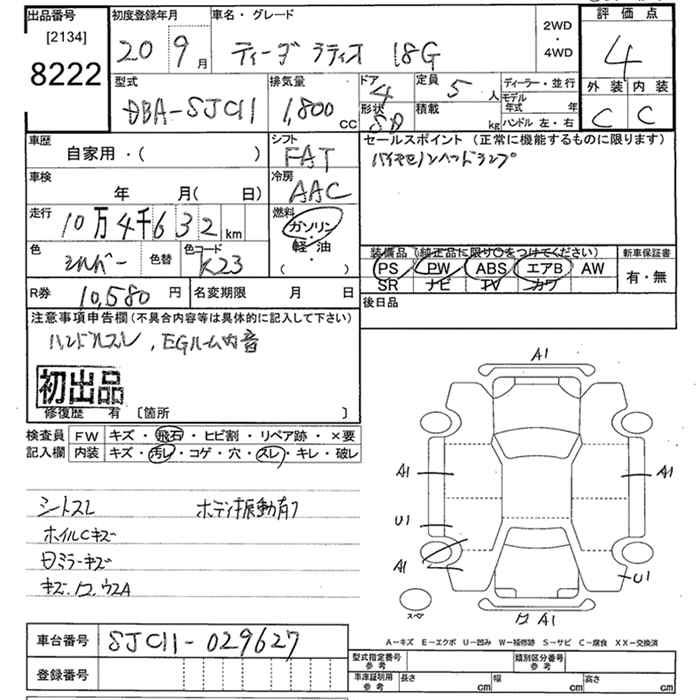 出品番号
[2134]
8222
初度登録年月
20 9月
車名・グレード
ティーダ ラティオ 18G
2WD
・
4WD
評価点
4
外装 内装
C C
型式
DBA-SJC11
排気量
1,800 cc
ドア
4
形状
SD
定員
5 人
積載
kg
ディーラー・並行
モデル年式 年
ハンドル 左・右
車歴
自家用・( )
シフト
FAT
セールスポイント (正常に機能するものに限ります)
車検
年 月( 日)
冷房
AAC
走行
10万4千632km
燃料
ガソリン
軽油
( )
色
シルバー
色替
色コード
K23
装備品 (純正品に限り○をつけてください)
PS PW ABS エアB AW
SR ナビ TV カワ
新車保証書
有・無
R券
10,580 円
名変期限 月 日
後日品
注意事項申告欄 (不具合内容等は具体的に記入して下さい)
ハンドルスレ, EGルーム内音
初出品
修復歴 有 [箇所 ]
検査員
記入欄
FW キズ・飛石・ヒビ割・リペア跡・×要
内装 キズ・汚レ・コゲ・穴・スレ・キレ・破レ
ボデー振動有り
ホイルCキズ
A1
A1
A1
U1
A1
U1
A1
スペア
A-キズ E-エクボ U-凹み W-補修跡 S-サビ C-腐食 XX-交換済
車台番号
SJC11-029627
登録番号
型式指定番号
参考
類別区分番号
参考
車庫証明用
参考
長さ cm
幅 cm
高さ cm